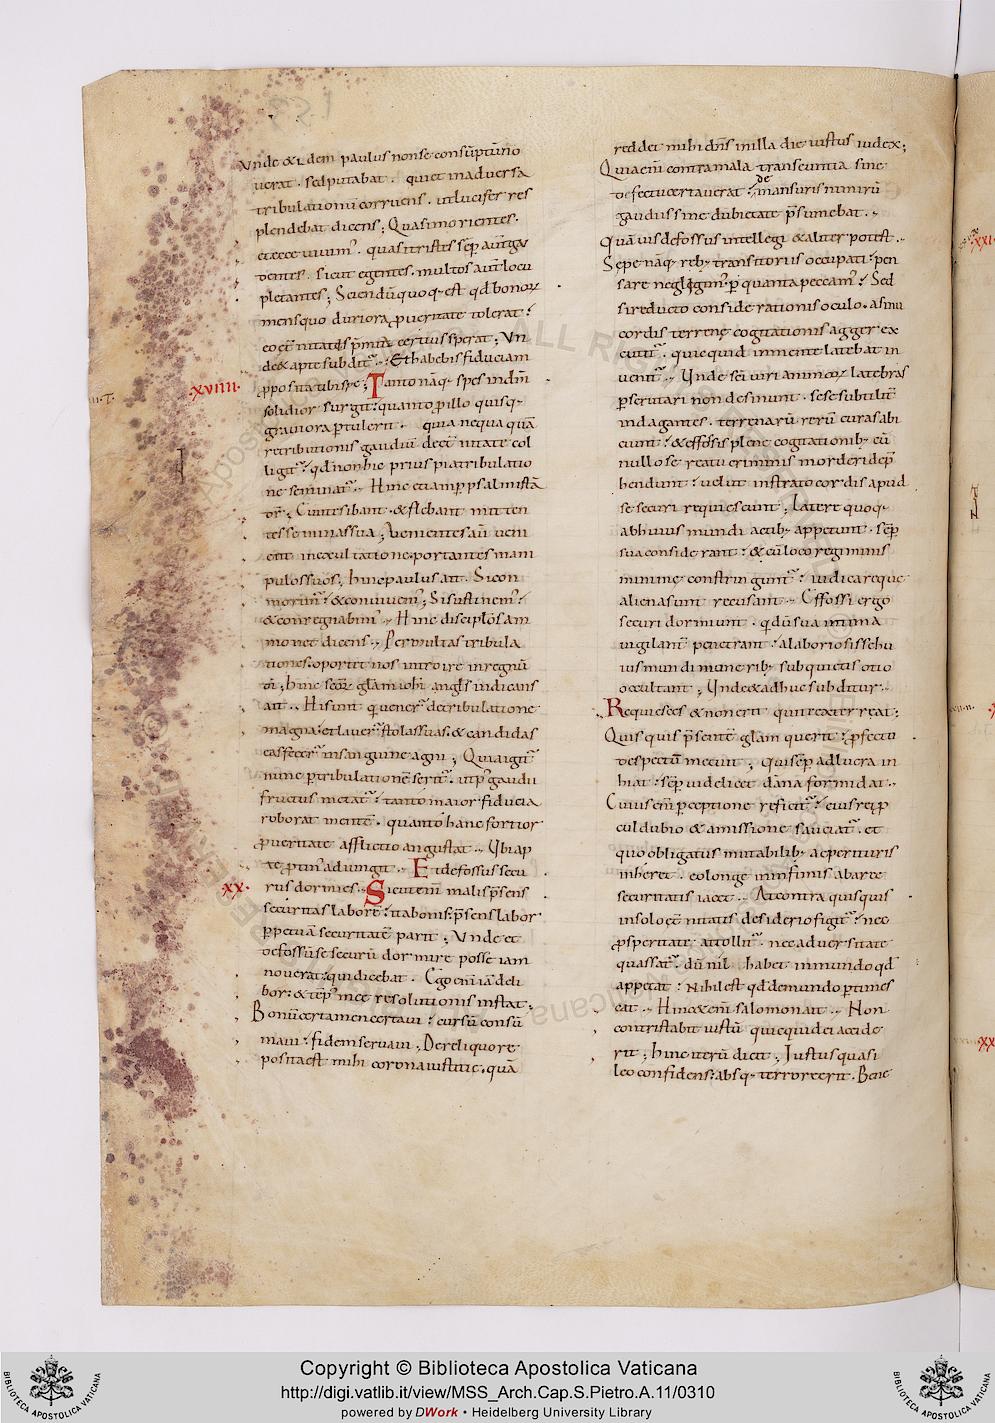 Unde & idem paulus non se consūptū no
uerat. sed putabat. qui et in aduersa
tribulationū corruens. ut lucifer res
plendebat dicens; Quasi morientes.
et ecce uiuim'. quasi tristes sēp aut̄ gau
dentes. sicut egentes. multos aut̄ locu
pletantes; Sciendū quoq; est qđ bonoꝝ
mens quo duriora ꝓ ueritate tolerat.
eo et̄nitatis p̄mia certius sperat; Un
de & apte subdit̄. Et habebis fiduciam
.xviiii. ꝓposita tibi spe; Tanto nāq; spes in dm̄
solidior surgit: quanto ꝓ illo quisq;
grauiora ꝑtulerit. quia nequaquā
retributionis gaudiū de et̄nitate col
ligit̄. qđ non hic prius pia tribulatio
ne seminat̄. Hinc etiam ꝑ psalmistā
dr̄; Euntes ibant & flebant mitten
tes semina sua; Uenientes aut̄ ueni
ent in exultatione. portantes mani
pulos suos; hinc paulus ait. Si con
morimur & conuiuem'; Si sustinem'
& conregnabim'. Hinc discipłos am
monet dicens. Per multas tribula
tiones oportet nos introire in regnū
dī; hinc scōꝝ glām iohī angłs indicans
ait. Hi sunt qui uener̄ de tribulatione
magna: et lauer̄ stolas suas & candidas
eas fecer̄ in sanguine agni; Quia igit̄
nunc ꝑ tribulationē serit̄. ut p' gaudii
fructus metat̄: tanto maior fiducia
roborat mentē. quanto hanc fortior
ꝓ ueritate afflictio angustat. Ubi ap
te ꝓtin' adiungit. Et defossus secu
.xx. rus dormies. Sicut enī malis p̄sens
securitas labore: ita bonis p̄sens labor
ꝑpetuā securitatē parit; Unde et
defossū se securū dormire posse iam
nouerat: qui dicebat. Ego enī iā deli
bor: & tēp' meę resolutionis instat.
Bonū certamen certaui: cursū consū
maui: fidem seruaui; De reliquo re
posita est mihi corona iustitię. quā
reddet mihi dn̄s in illa die iustus iudex;
Quia enī contra mala transeuntia sine
defectu certauerat: de mansuris nimirū
gaudiis sine dubietate p̄sumebat.
Quāuis defossus intellegi & aliter potest.
Sepe nāq; reb; transitoriis occupati: pen
sare neglegim' ꝑ quanta peccam': Sed
si reducto considerationis oculo. a sinu
cordis terrenę cogitationis agger ex
cutit̄. quicquid in mente latebat in
uenit̄. Unde scī uiri animoꝝ latebras
ꝑscrutari non desinunt. sese subtilit̄
indagantes. terrenarū rerū curas abi
ciunt: & effossis plene cogitationib; cū
nullo se reatu criminis morderi dep̄
hendunt: uelut in strato cordis apud
se securi requiescunt; Latere quoq;
ab huius mundi actib; appetunt. sēp
sua considerant: & cū loco regiminis
minime constringunt̄: iudicareque
aliena sunt recusant. Effossi ergo
securi dormiunt. qđ dū sua intima
uigilant̄ penetrant: a laboriosis se hu
ius mundi munerib; sub quietis otio
occultant; Unde & adhuc subditur.
Requiesces & non erit qui te exterreat:
Quisquis p̄sentē glām querit: ꝓfecto
despectū metuit; Qui sēp ad lucra in
hiat: sēp uidelicet dāna formidat.
Cuius enī ꝑceptione reficit̄: eius rei ꝓ
cul dubio & amissione sauciat̄. et
quo obligatus mutabilib; ac perituris
inheret. eo longe in infimis ab arce
securitatis iacet. At contra quisquis
in solo et̄nitatis desiderio figit̄: nec
ꝓsperitate attollit̄. nec aduersitate
quassat̄. dū nil habet in mundo qđ
appetat: nihil est qđ de mundo ꝑtimes
cat. Hinc enī salomon ait. Non
contristabit iustū quicquid ei accide
rit; hinc iterū dicit; Iustus quasi
leo confidens: absq; terrore erit. Bene
Copyright © Biblioteca Apostolica Vaticana
http://digi.vatlib.it/view/MSS_Arch.Cap.S.Pietro.A.11/0310
powered by DWork • Heidelberg University Library
BIBLIOTECA APOSTOLICA VATICANA
BIBLIOTECA APOSTOLICA VATICANA